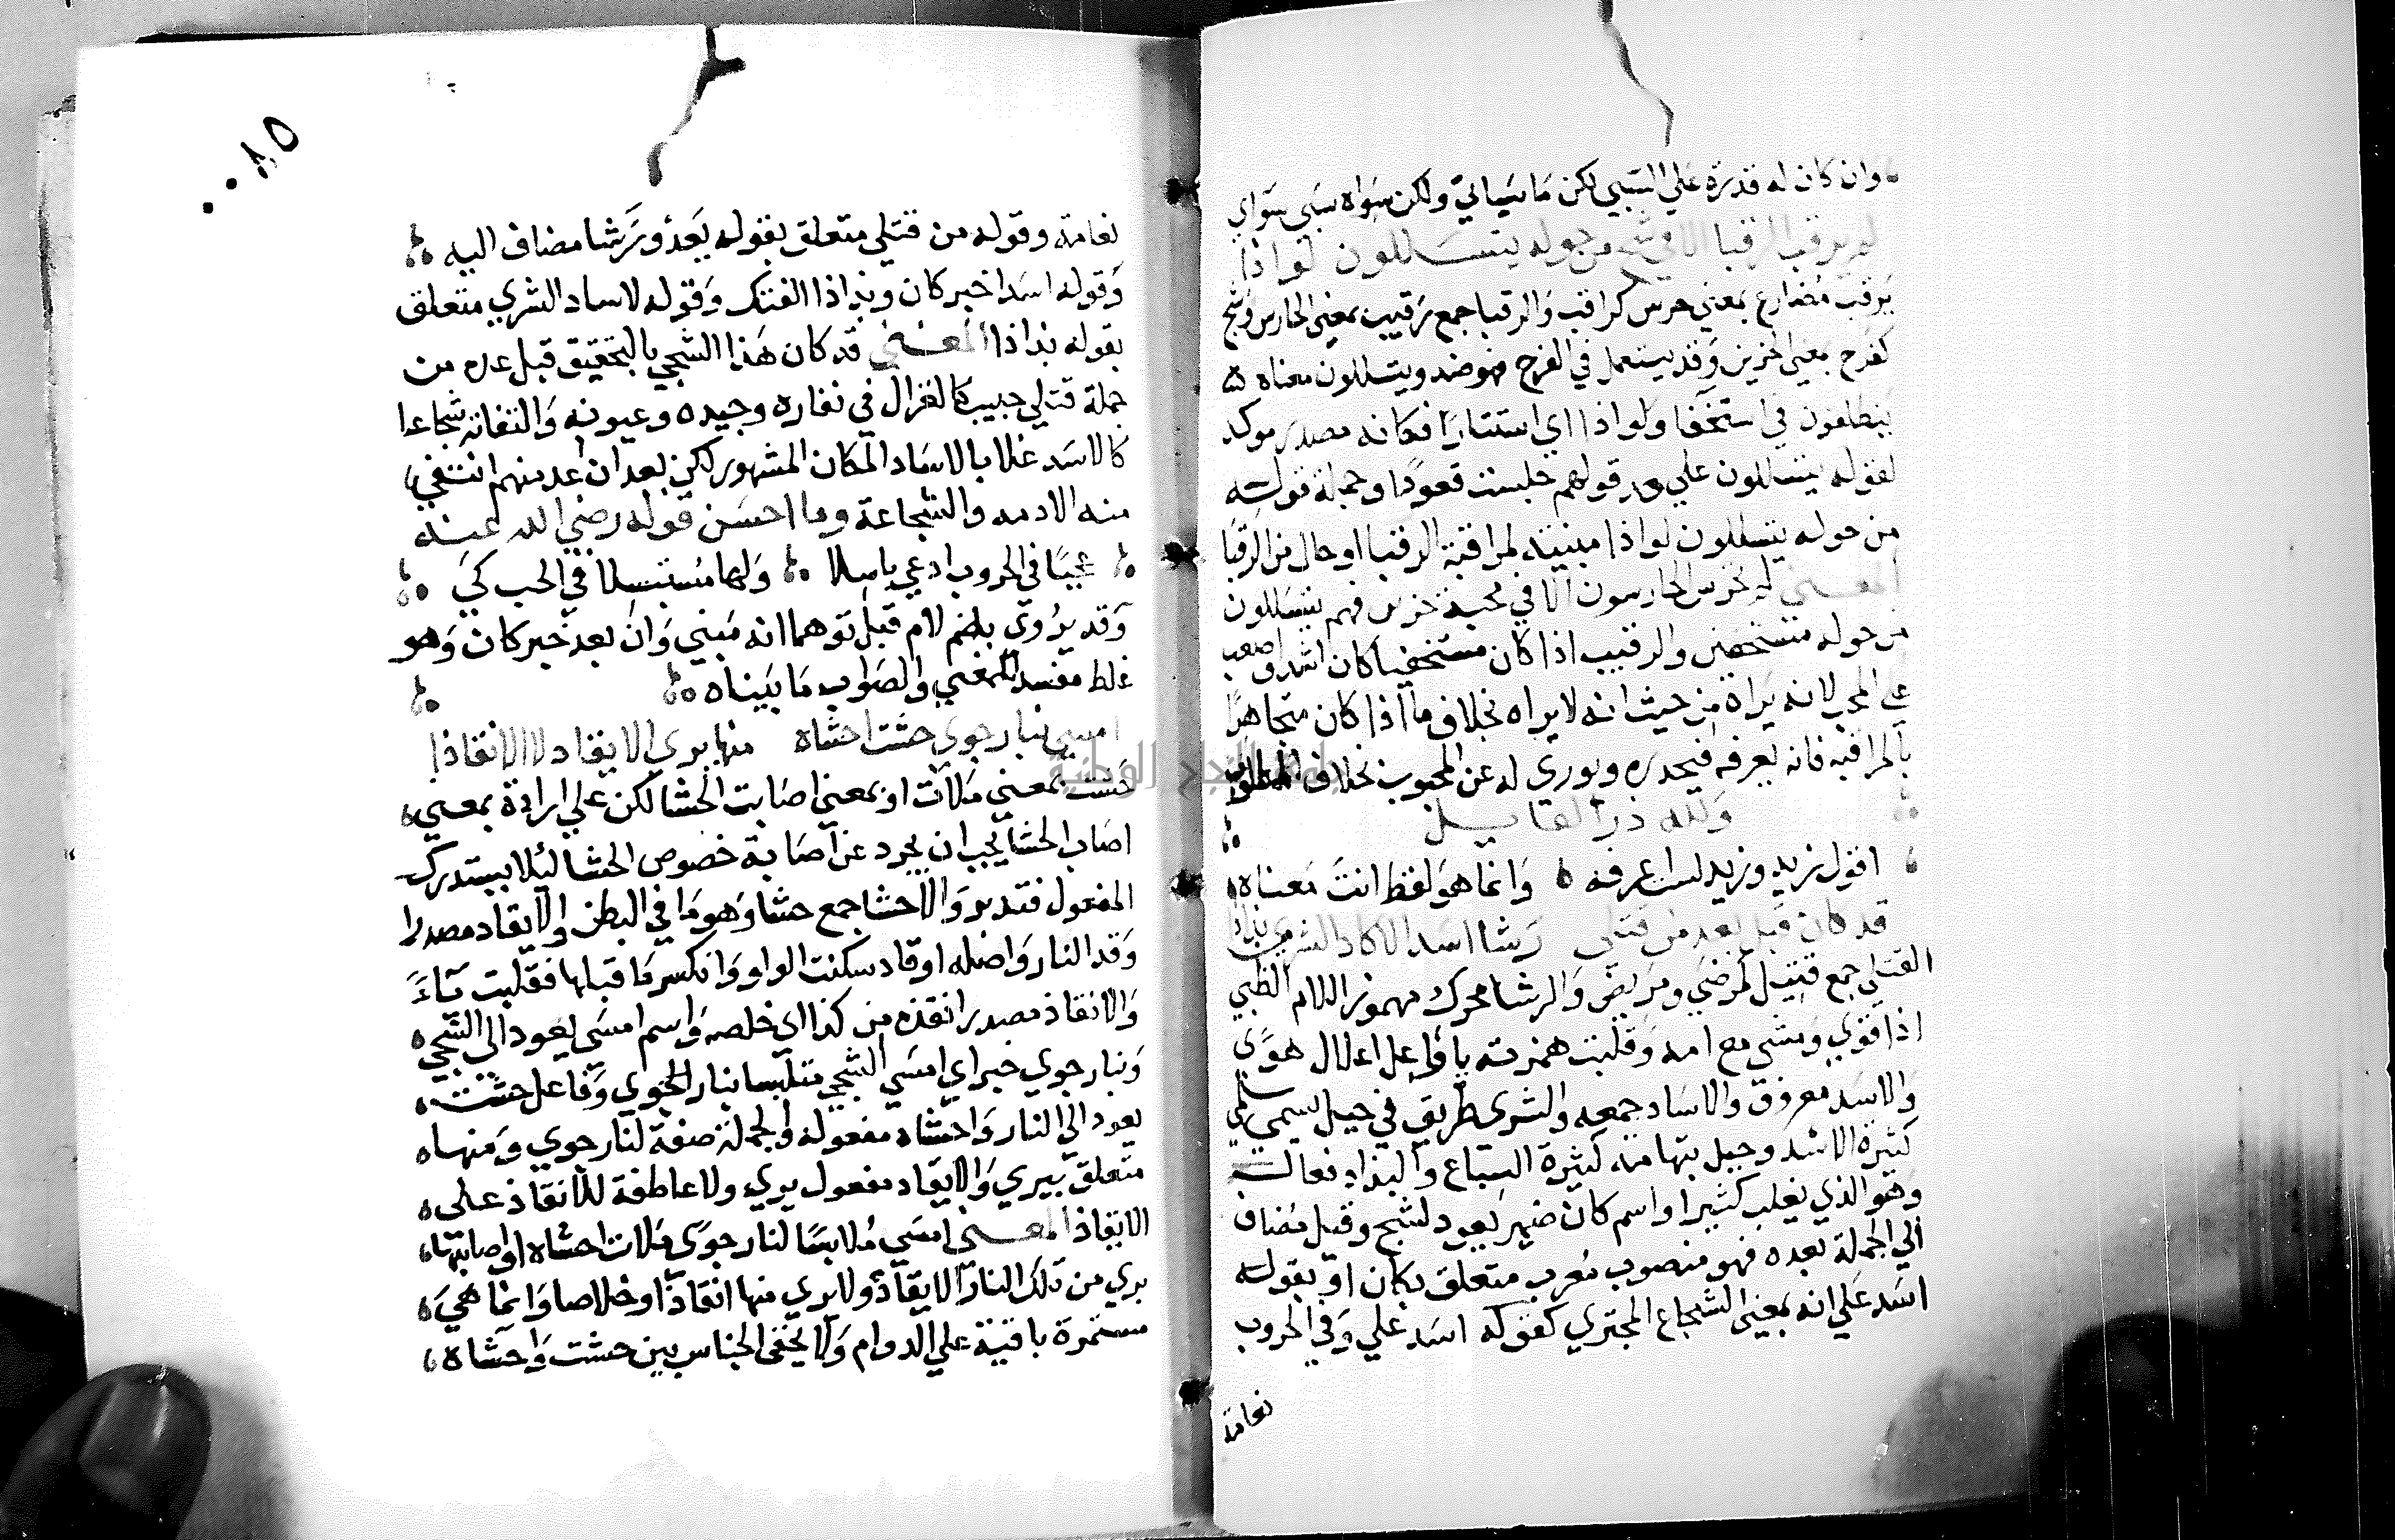 وان كان له قدرة علي السبي لكن ما سباني ولكن سواه سبي سواي
لم يرقب الرقبا الا في شج من حوله يتسللون لواذا
يرقب مضارع بمعني حرس كراقب والرقبا جمع رقيب بمعني الحارس وشج
كفرح بمعني الحزين وقد يستعمل في الفرح فهو ضد ويتسللون معناه
ينطلقون في استخفا ولواذا اي استتارا فكانه مصدر موكد
لقوله يتسللون علي حد قولهم جلست قعودا وجملة قوله
من حوله يتسللون لواذا مبينة لمراقبة الرقبا او حال من الرقبا
المعني لم تحرس الحارسون الا في محبة حزين فهم يتسللون
من حوله مستخفين والرقيب اذا كان مستخفيا كان اشد واصعب
علي المحب لانه يراه من حيث انه لا يراه بخلاف ما اذا كان متجاهرا
بالمراقبة فانه يعرفه فيحذره ويوري له عن المحبوب بخلاف
ولله در القايل
اقول زيد وزيد لست اعرفه وانما هو لفظ انت معناه
قد كان قبل يعد من قتلي رشا اسدا لاساد الشري بذاذا
القتلي جمع قتيل كمرضي ومريض والرشا محرك مهموز اللام الظبي
اذا قوي ومشي مع امه وقلبت همزته يا واعل اعلال هوي
والاسد معروف والاساد جمعه والشري طريق في جبل يسمي سلمي
كثيرة الاسد وجبل بتهامة كثيرة السباع والبذاذ فعال
وهو الذي يغلب كثيرا واسم كان ضمير يعود لشج وقبل مضاف
الي الجملة بعده فهو منصوب معرب متعلق بكان او بقوله
اسد علي انه بمعني الشجاع المجتري كقوله اسد علي وفي الحروب
نعامة
٠٠١٥
نعامة وقوله من قتلي متعلق بقوله يعد ورشا مضاف اليه
وقوله اسدا خبر كان وبذاذا الفتك وقوله لاساد الشري متعلق
بقوله بذاذا المعني قد كان هذا الشجي بالتحقيق قبل عده من
جملة قتلي حبيب كالغزال في نفاره وجيده وعيونه والتفاته شجاعا
كالاسد غلابا لاساد المكان المشهور لكن بعد ان عد منهم انتفي
منه الادمه والشجاعة وما احسن قوله رضي الله عنه
عجبا في الحروب ادعي باسلا ولها مستبسلا في الحب كي
وقد يروي بضم لام قبل توهما انه مبني وان بعد خبر كان وهو
غلط مفسد للمعني والصواب ما بيناه
امسي بنار جوي حشت احشاه منها يري الايقاد لا الانقاذا
حشت بمعني ملات او بمعني اصابت الحشا لكن علي ارادة بمعني
اصاب الحشا يجب ان يجرد عن اصابة خصوص الحشا ليلا يستدرك
المفعول فتدبر والاحشا جمع حشا وهو ما في البطن والايقاد مصدر
وقد النار واصله اوقاد سكنت الواو وانكسر ما قبلها فقلبت ياء
والانقاذ مصدر انقذه من كذا اي خلصه واسم امسي يعود الي الشجي
وبنار جوي خبر اي امسي الشجي متلبسا بنار الجوي وفاعل حشت
يعود الي النار واحشاه مفعوله والجملة صفة لنار جوي ومنها
متعلق بيري والايقاد مفعول يري ولا عاطفة للانقاذ علي
الايقاد المعني امسي ملابسا لنار جوي ملات احشاه او اصابتها
يري من تلك النار الايقاد ولا يري منها انقاذا وخلاصا وانما هي
مستمرة باقية علي الدوام ولا يخفي الجناس بين حشت واحشاه